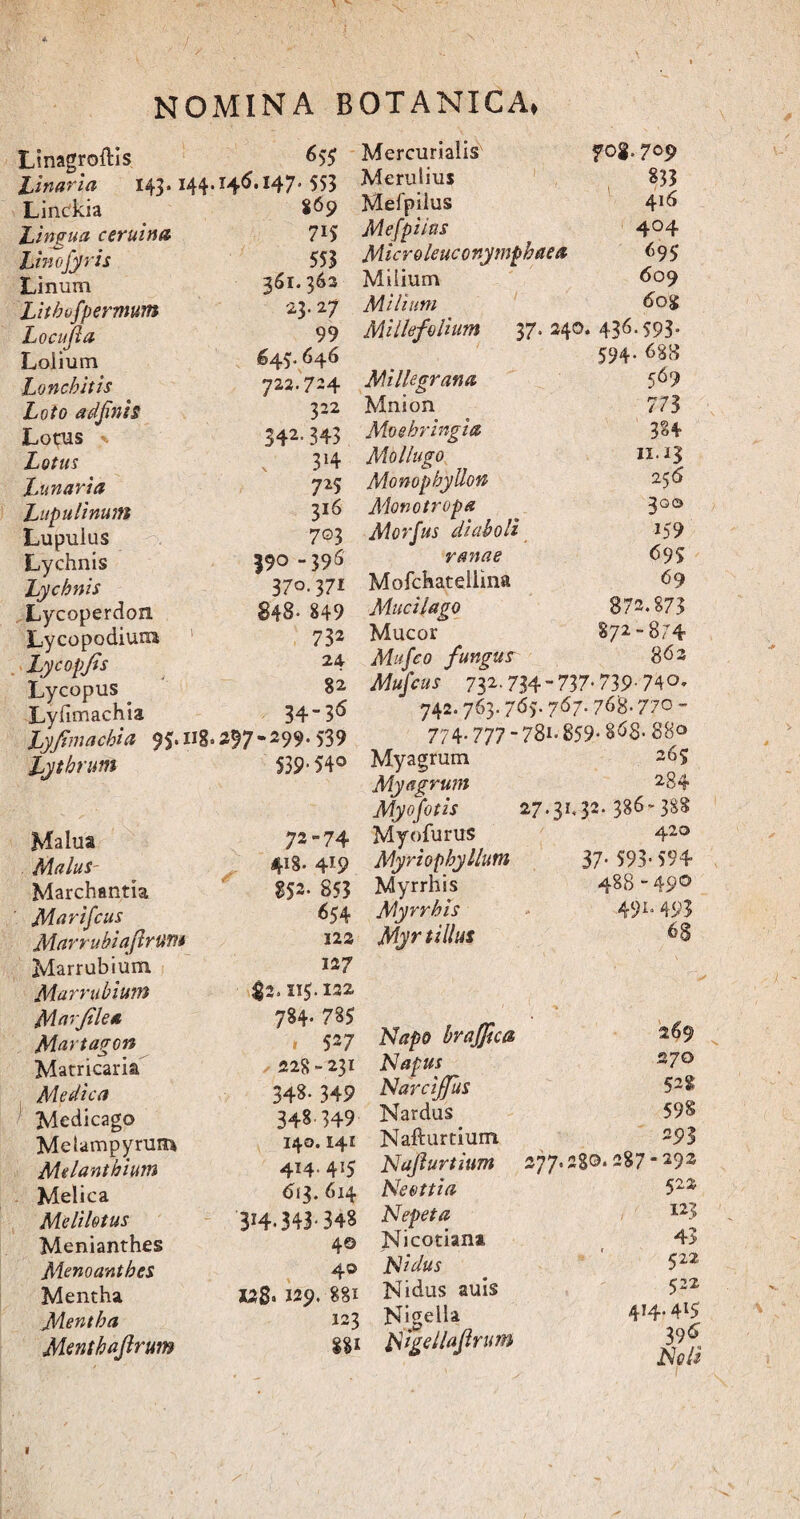 NOMINA BOTANICA,
Linagroſtis 655
Linaria 143. 144. 146. 147. 553
Linckia 869
Lingua ceruina 715
Linoſyris 553
Linum 361. 362
Lithoſpermum 23. 27
Locuſta 99
Lolium 645. 646
Lonchitis 722. 724
Loto adfinis 322
Lotus 342. 343
Lotus 314
Lunaria 725
Lupulinum 316
Lupulus 703
Lychnis 390 - 396
Lychnis 370. 371
Lycoperdon 848. 849
Lycopodium 732
Lycopſis 24
Lycopus 82
Lyſimachia 34 - 36
Lyſimachia 95. 118. 297 - 299. 539
Lythrum 539. 540
Malua 72 - 74
Malus 418. 419
Marchantia 852. 853
Mariſcus 654
Marrubiaſtrum 122
Marrubium 127
Marrubium 82. 115. 122
Marſilea 784. 785
Martagon 527
Matricaria 228 - 231
Medica 348. 349
Medicago 348. 349
Melampyrum 140. 141
Melanthium 414. 415
Melica 613. 614
Melilotus 314. 343. 348
Menianthes 40
Menoanthes 40
Mentha 128. 129. 881
Mentha 123
Menthaſtrum 881
Mercurialis 708. 709
Merulius 833
Meſpilus 416
Meſpilus 404
Microleuconymphaea 695
Milium 609
Milium 608
Millefolium 37. 240. 436. 593.
594. 688
Millegrana 569
Mnion 773
Moehringia 384
Mollugo 11. 13
Monophyllon 256
Monotropa 300
Morſus diaboli 159
ranae 695
Moſchatellina 69
Mucilago 872. 873
Mucor 872 - 874
Muſco fungus 862
Muſcus 732. 734 - 737. 739. 740.
742. 763. 765. 767. 768. 770 -
774. 777 - 781. 859. 868. 880
Myagrum 265
Myagrum 284
Myoſotis 27. 31. 32. 386 - 388
Myoſurus 420
Myriophyllum 37. 593. 594
Myrrhis 488 - 490
Myrrhis 491. 493
Myrtillus 68
Napo braſſica 269
Napus 270
Narciſſus 528
Nardus 598
Naſturtium 293
Naſturtium 277. 280. 287 - 292
Neottia 522
Nepeta 123
Nicotiana 43
Nidus 522
Nidus auis 522
Nigella 414. 415
Nigellaſtrum 396
Noli